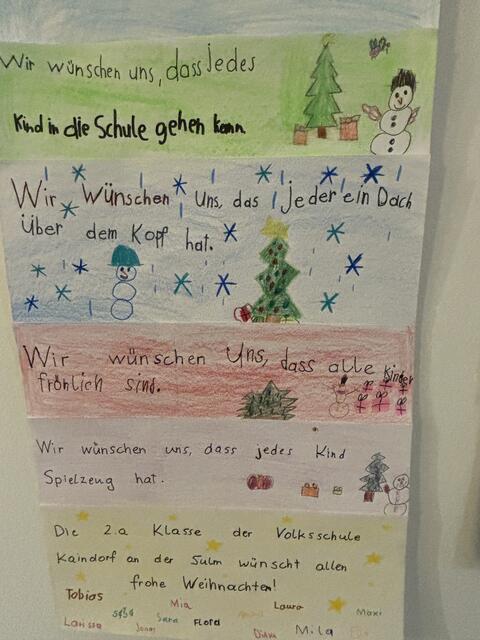 Wir wünschen uns, dass jedes
Kind in die Schule gehen kann.
Wir wünschen uns, das jeder ein Dach
Über dem Kopf hat.
Wir wünschen Uns, dass alle Kinder
fröhlich sind.
Wir wünschen uns, dass jedes Kind
Spielzeug hat.
Die 2.a Klasse der Volksschule
Kaindorf an der Sulm wünscht allen
frohe Weihnachten!
Tobias Mia Laura Maxi
Sara Flora
Larissa Jonas Diana Mila